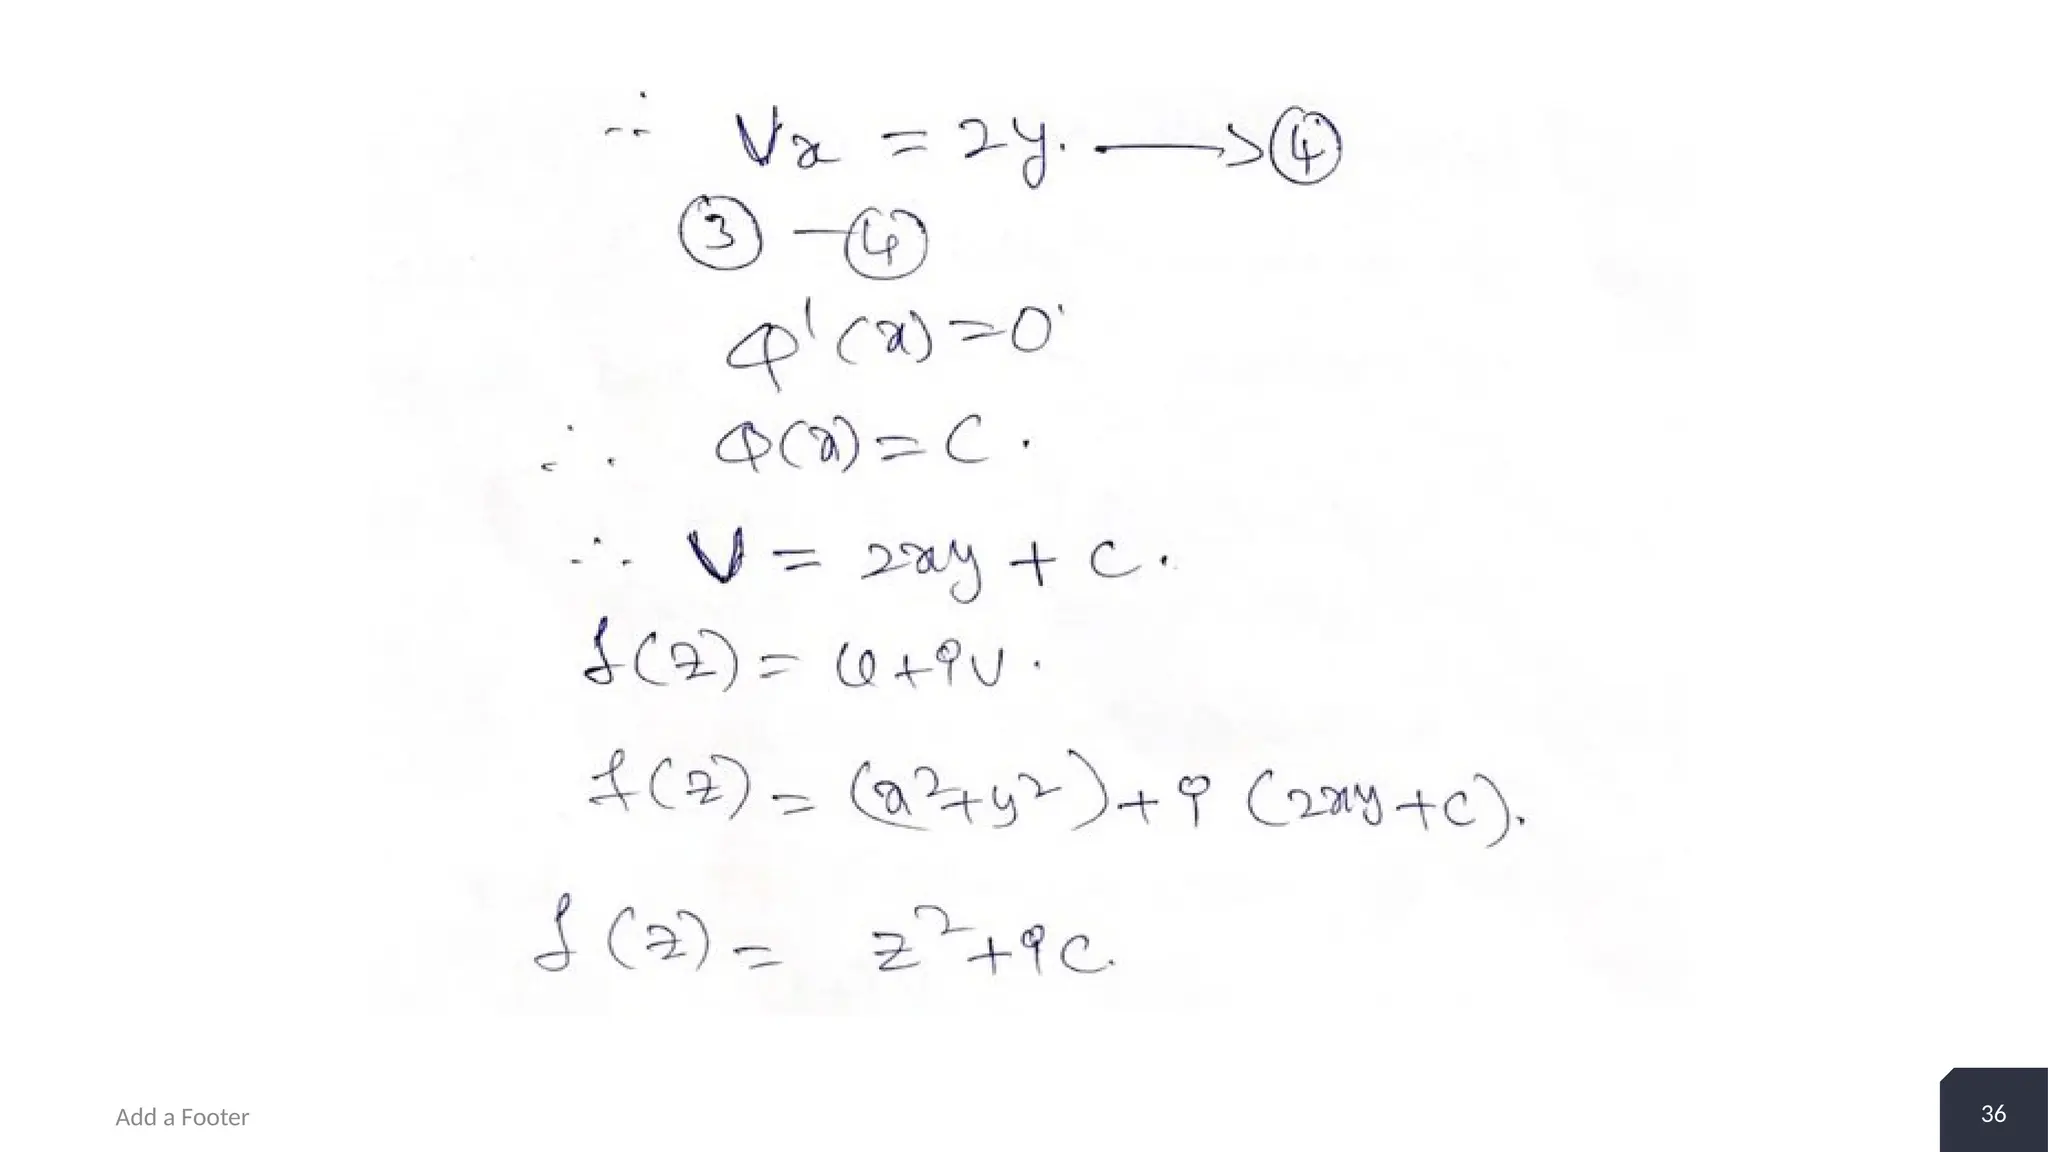 ∴ Vx = 2y. ⟶ ④
③ - ④
φ'(x) = 0
∴ φ(x) = C.
∴ V = 2xy + C.
f(z) = u + iv.
f(z) = (x²+y²) + i (2xy + C).
f(z) = z² + iC.
Add a Footer
36